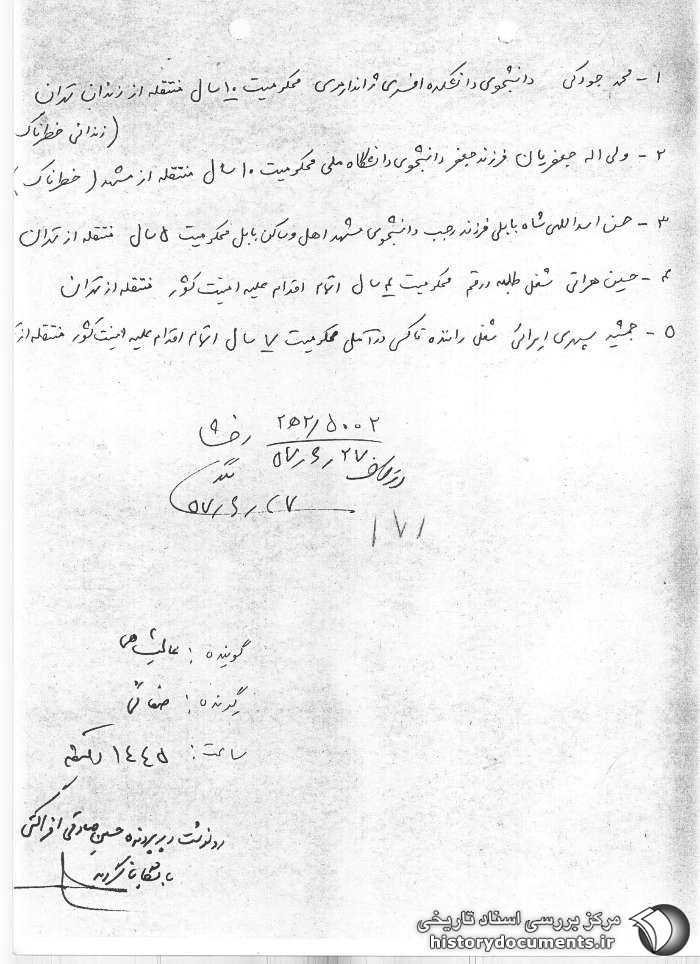 ۱- محمد جودکی دانشجوی دانشکده افسری ژاندارمری محکومیت ۱۰ سال منتقله از زندان تهران
(زندانی خطرناک
۲- ولی اله جعفریان فرزند جعفر دانشجوی دانشگاه ملی محکومیت ۱۰ سال منتقله از مشهد (خطرناک)
۳- حسن اسداللهی شاه بابلی فرزند رجب دانشجوی مشهد اهل و ساکن بابل محکومیت ۵ سال منتقله از تهران
۴- حسین هراتی شغل طلبه در قم محکومیت ۴ سال اتهام اقدام علیه امنیت کشور منتقله از تهران
۵- جمشید سپهری ایرائی شغل راننده تاکسی در آمل محکومیت ۷ سال اتهام اقدام علیه امنیت کشور منتقله از
۲۵۲/۵۰۰۲
۲۷/۶/۵۷
۲۷/۶/۵۷
۱۷۱
گوینده :
گیرنده :
ساعت : ۱۴۴۵ دقیقه
رونوشت در پرونده حسین صادقی افراکتی
بایگانی گردد
مرکز بررسی اسناد تاریخی
historydocuments.ir